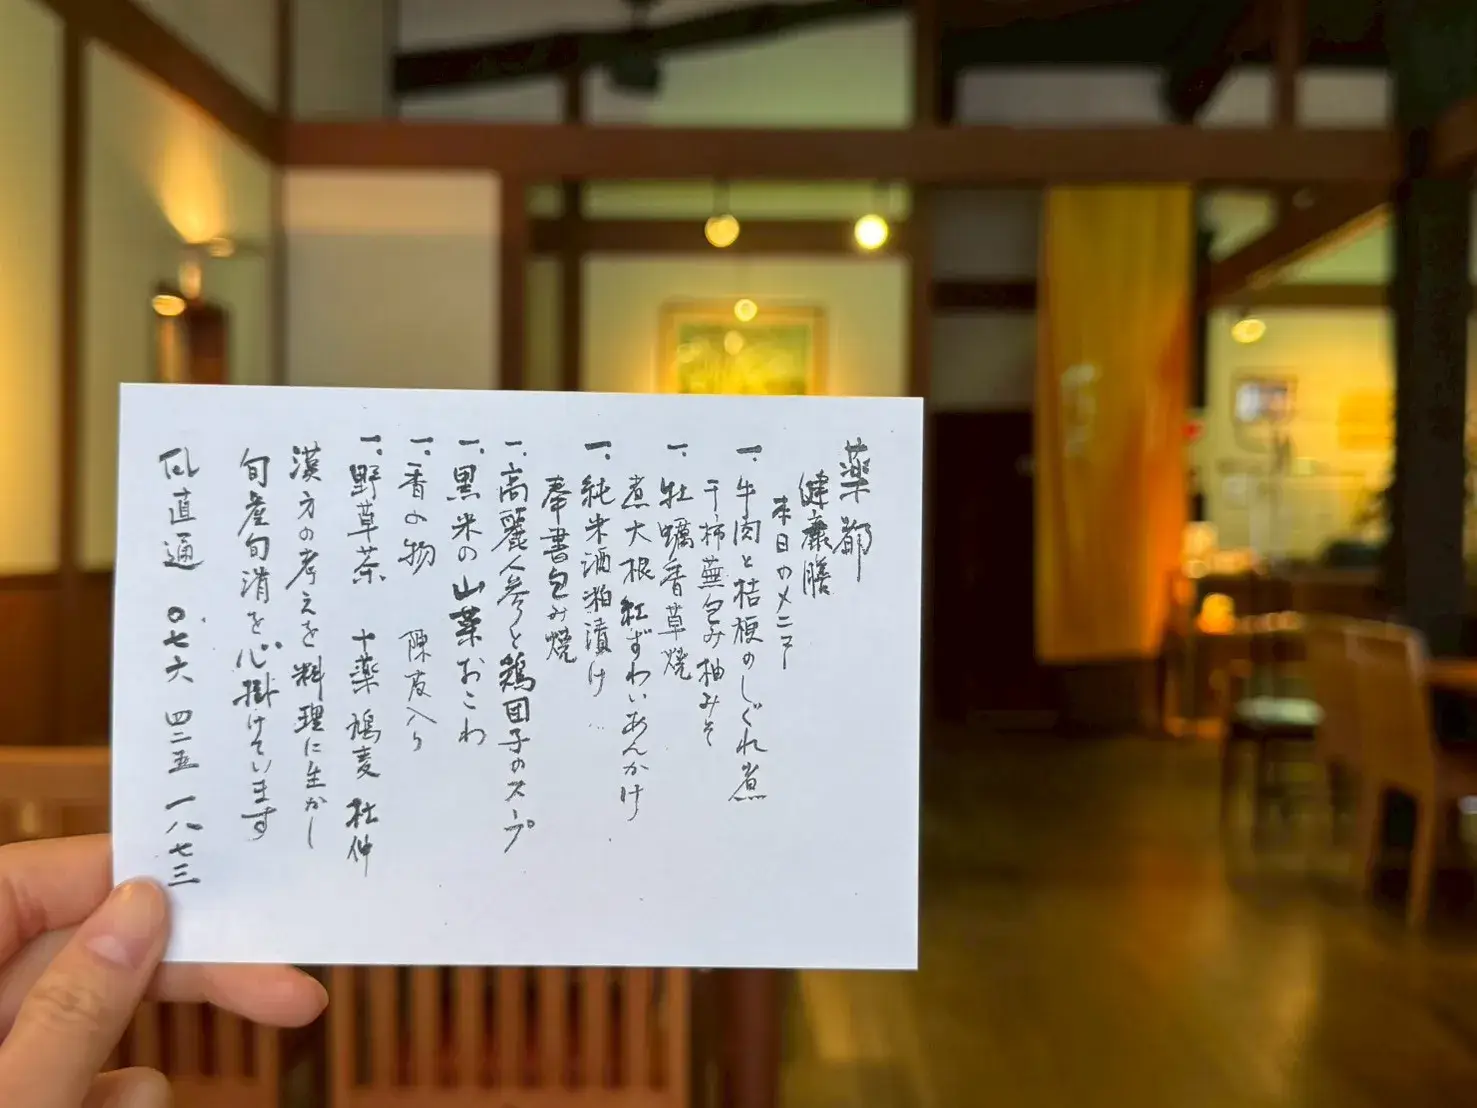 薬都
健康膳
本日のメニュー
一、牛肉と桔梗のしぐれ煮
干柿蕪包み柚みそ
一、牡蠣香草焼
煮大根紅ずわいあんかけ
一、純米酒粕漬け
奉書包み焼
一、高麗人参と鶏団子のスープ
一、黒米の山菜おこわ
一、香の物 陳皮入り
一、野草茶 十薬 鳩麦 杜仲
漢方の考えを料理に生かし
旬産旬消を心掛けています
直通 〇七六 四二五 一八七三